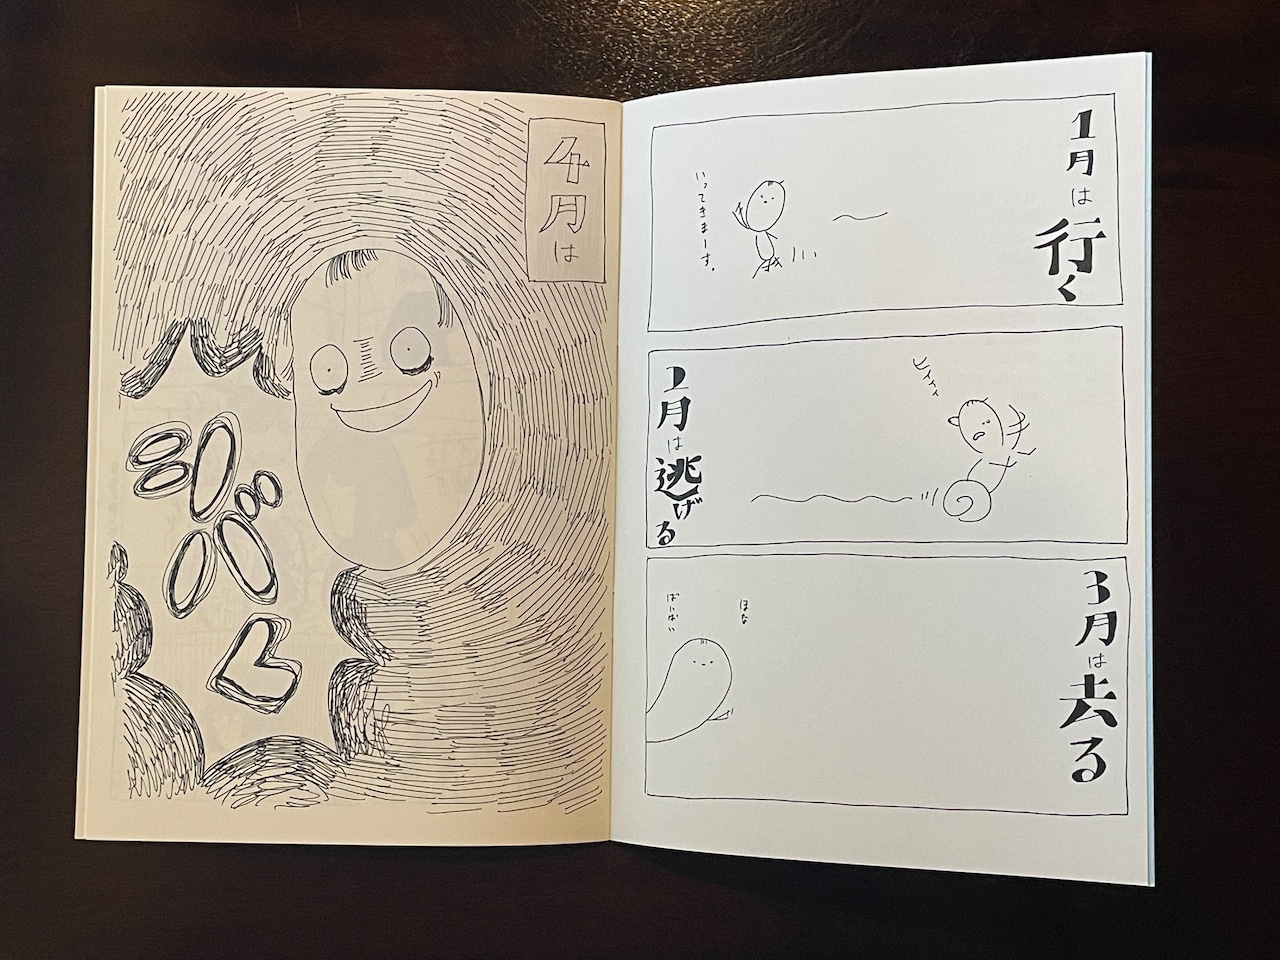 1月は行く
いってきまーす。
2月は逃げる
ヒィィィ
3月は去る
ほな
ばいばい
4月は
シバく